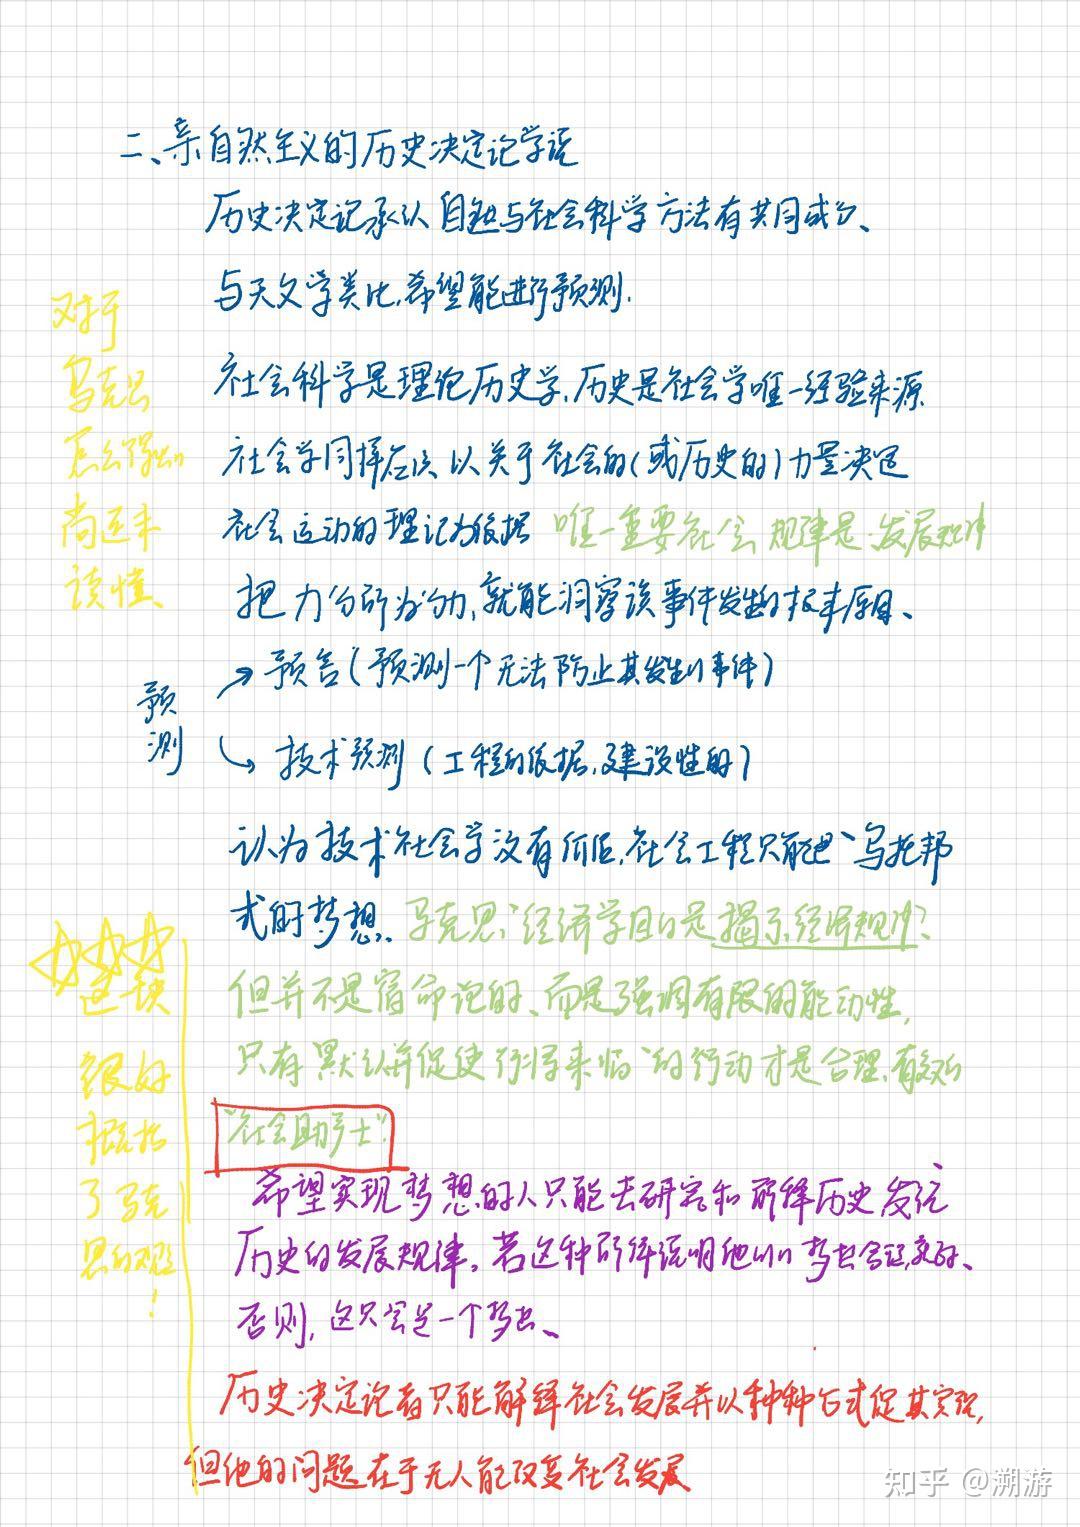 二、亲自然主义的历史决定论学说
历史决定记承认自然与社会科学方法有共同成分、
与天文学类比,希望能进行预测.
对于
马克思
怎么得出的
尚还未
读懂、
社会科学是理论历史学,历史是社会学唯一经验来源
社会学同样应该以关于社会的(或历史的)力量决定
社会运动的理记为依据 唯一重要社会规律是、发展规律
把力分所为分力,就能洞察该事件发生的根本原因、
预测
→预言(预测一个无法防止其发生的事件)
→技术预测(工程的依据,建设性的)
认为技术社会学没有价值,社会工程只能是"乌托邦
式的梦想、马克思:"经济学目的是揭示经济规律"、
但并不是宿命论的、而是强调有限的能动性,
只有"默认并促使行将来临"的行动才是合理,有效的
"社会助产士".
这一块
很好
概括
了马克
思的观点
!
希望实现梦想的人只能去研究和解释历史发现
历史的发展规律,若这种解释说明他们的梦想会实现,
否则,这只会是一个梦想、
历史决定论者只能解释社会发展并以种种方式促其实现,
但他的问题在于无人能改变社会发展
知乎 @溯游